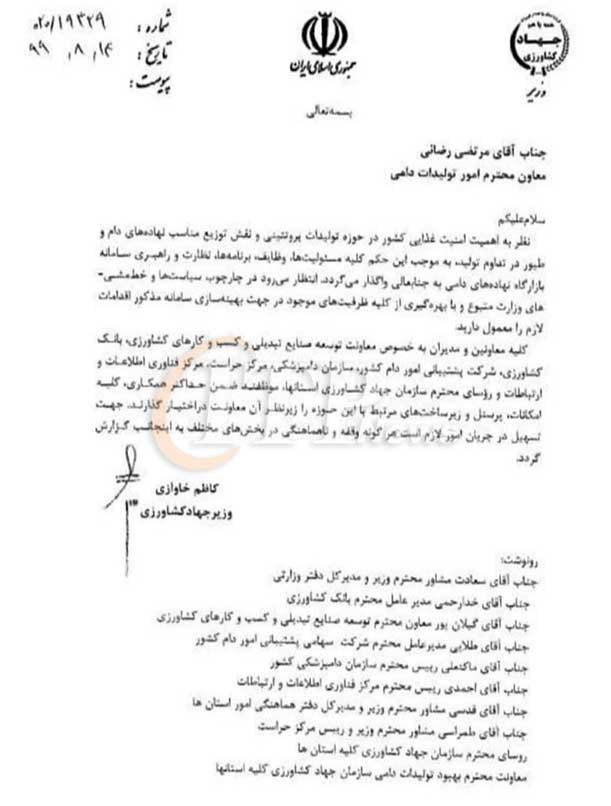 شماره : ۰۲۰/۱۹۳۲۹
تاریخ : ۹۹ . ۸ . ۱۴
پیوست :
جمهوری اسلامی ایران
همه با هم
جهاد
کشاورزی
وزیر
بسمه‌تعالی
جناب آقای مرتضی رضائی
معاون محترم امور تولیدات دامی
سلام‌علیکم
نظر به اهمیت امنیت غذایی کشور در حوزه تولیدات پروتئینی و نقش توزیع مناسب نهاده‌های دام و
طیور در تداوم تولید، به موجب این حکم کلیه مسئولیت‌ها، وظایف، برنامه‌ها، نظارت و راهبری سامانه
بازارگاه نهاده‌های دامی به جنابعالی واگذار می‌گردد. انتظار می‌رود در چارچوب سیاست‌ها و خط‌مشی-
های وزارت متبوع و با بهره‌گیری از کلیه ظرفیت‌های موجود در جهت بهینه‌سازی سامانه مذکور اقدامات
لازم را معمول دارید.
کلیه معاونین و مدیران به خصوص معاونت توسعه صنایع تبدیلی و کسب و کارهای کشاورزی، بانک
کشاورزی، شرکت پشتیبانی امور دام کشور، سازمان دامپزشکی، مرکز حراست، مرکز فناوری اطلاعات و
ارتباطات و رؤسای محترم سازمان جهاد کشاورزی استانها، موظفند ضمن حداکثر همکاری، کلیه
امکانات، پرسنل و زیرساخت‌های مرتبط با این حوزه را زیرنظر آن معاونت دراختیار گذارند. جهت
تسهیل در جریان امور لازم است هرگونه وقفه و ناهماهنگی در بخش‌های مختلف به اینجانب گزارش
گردد.
کاظم خاوازی
وزیرجهادکشاورزی
رونوشت:
جناب آقای سعادت مشاور محترم وزیر و مدیرکل دفتر وزارتی
جناب آقای خدارحمی مدیر عامل محترم بانک کشاورزی
جناب آقای گیلان پور معاون محترم توسعه صنایع تبدیلی و کسب و کارهای کشاورزی
جناب آقای طلایی مدیرعامل محترم شرکت سهامی پشتیبانی امور دام کشور
جناب آقای ماکنعلی رییس محترم سازمان دامپزشکی کشور
جناب آقای احمدی رییس محترم مرکز فناوری اطلاعات و ارتباطات
جناب آقای قدسی مشاور محترم وزیر و مدیرکل دفتر هماهنگی امور استان ها
جناب آقای طمراسی مشاور محترم وزیر و رییس مرکز حراست
روسای محترم سازمان جهاد کشاورزی کلیه استان ها
معاونت محترم بهبود تولیدات دامی سازمان جهاد کشاورزی کلیه استانها